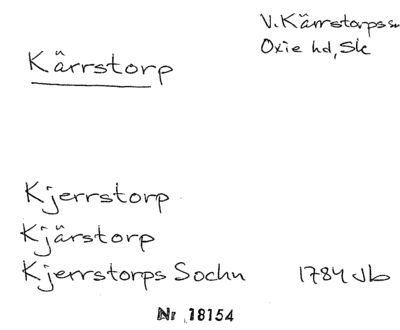 V. Kärrstorps sn
Oxie hd, Sk
Kärrstorp
Kjerrstorp
Kjärstorp
Kjerrstorps Sochn 1784 Jb
Nr 18154